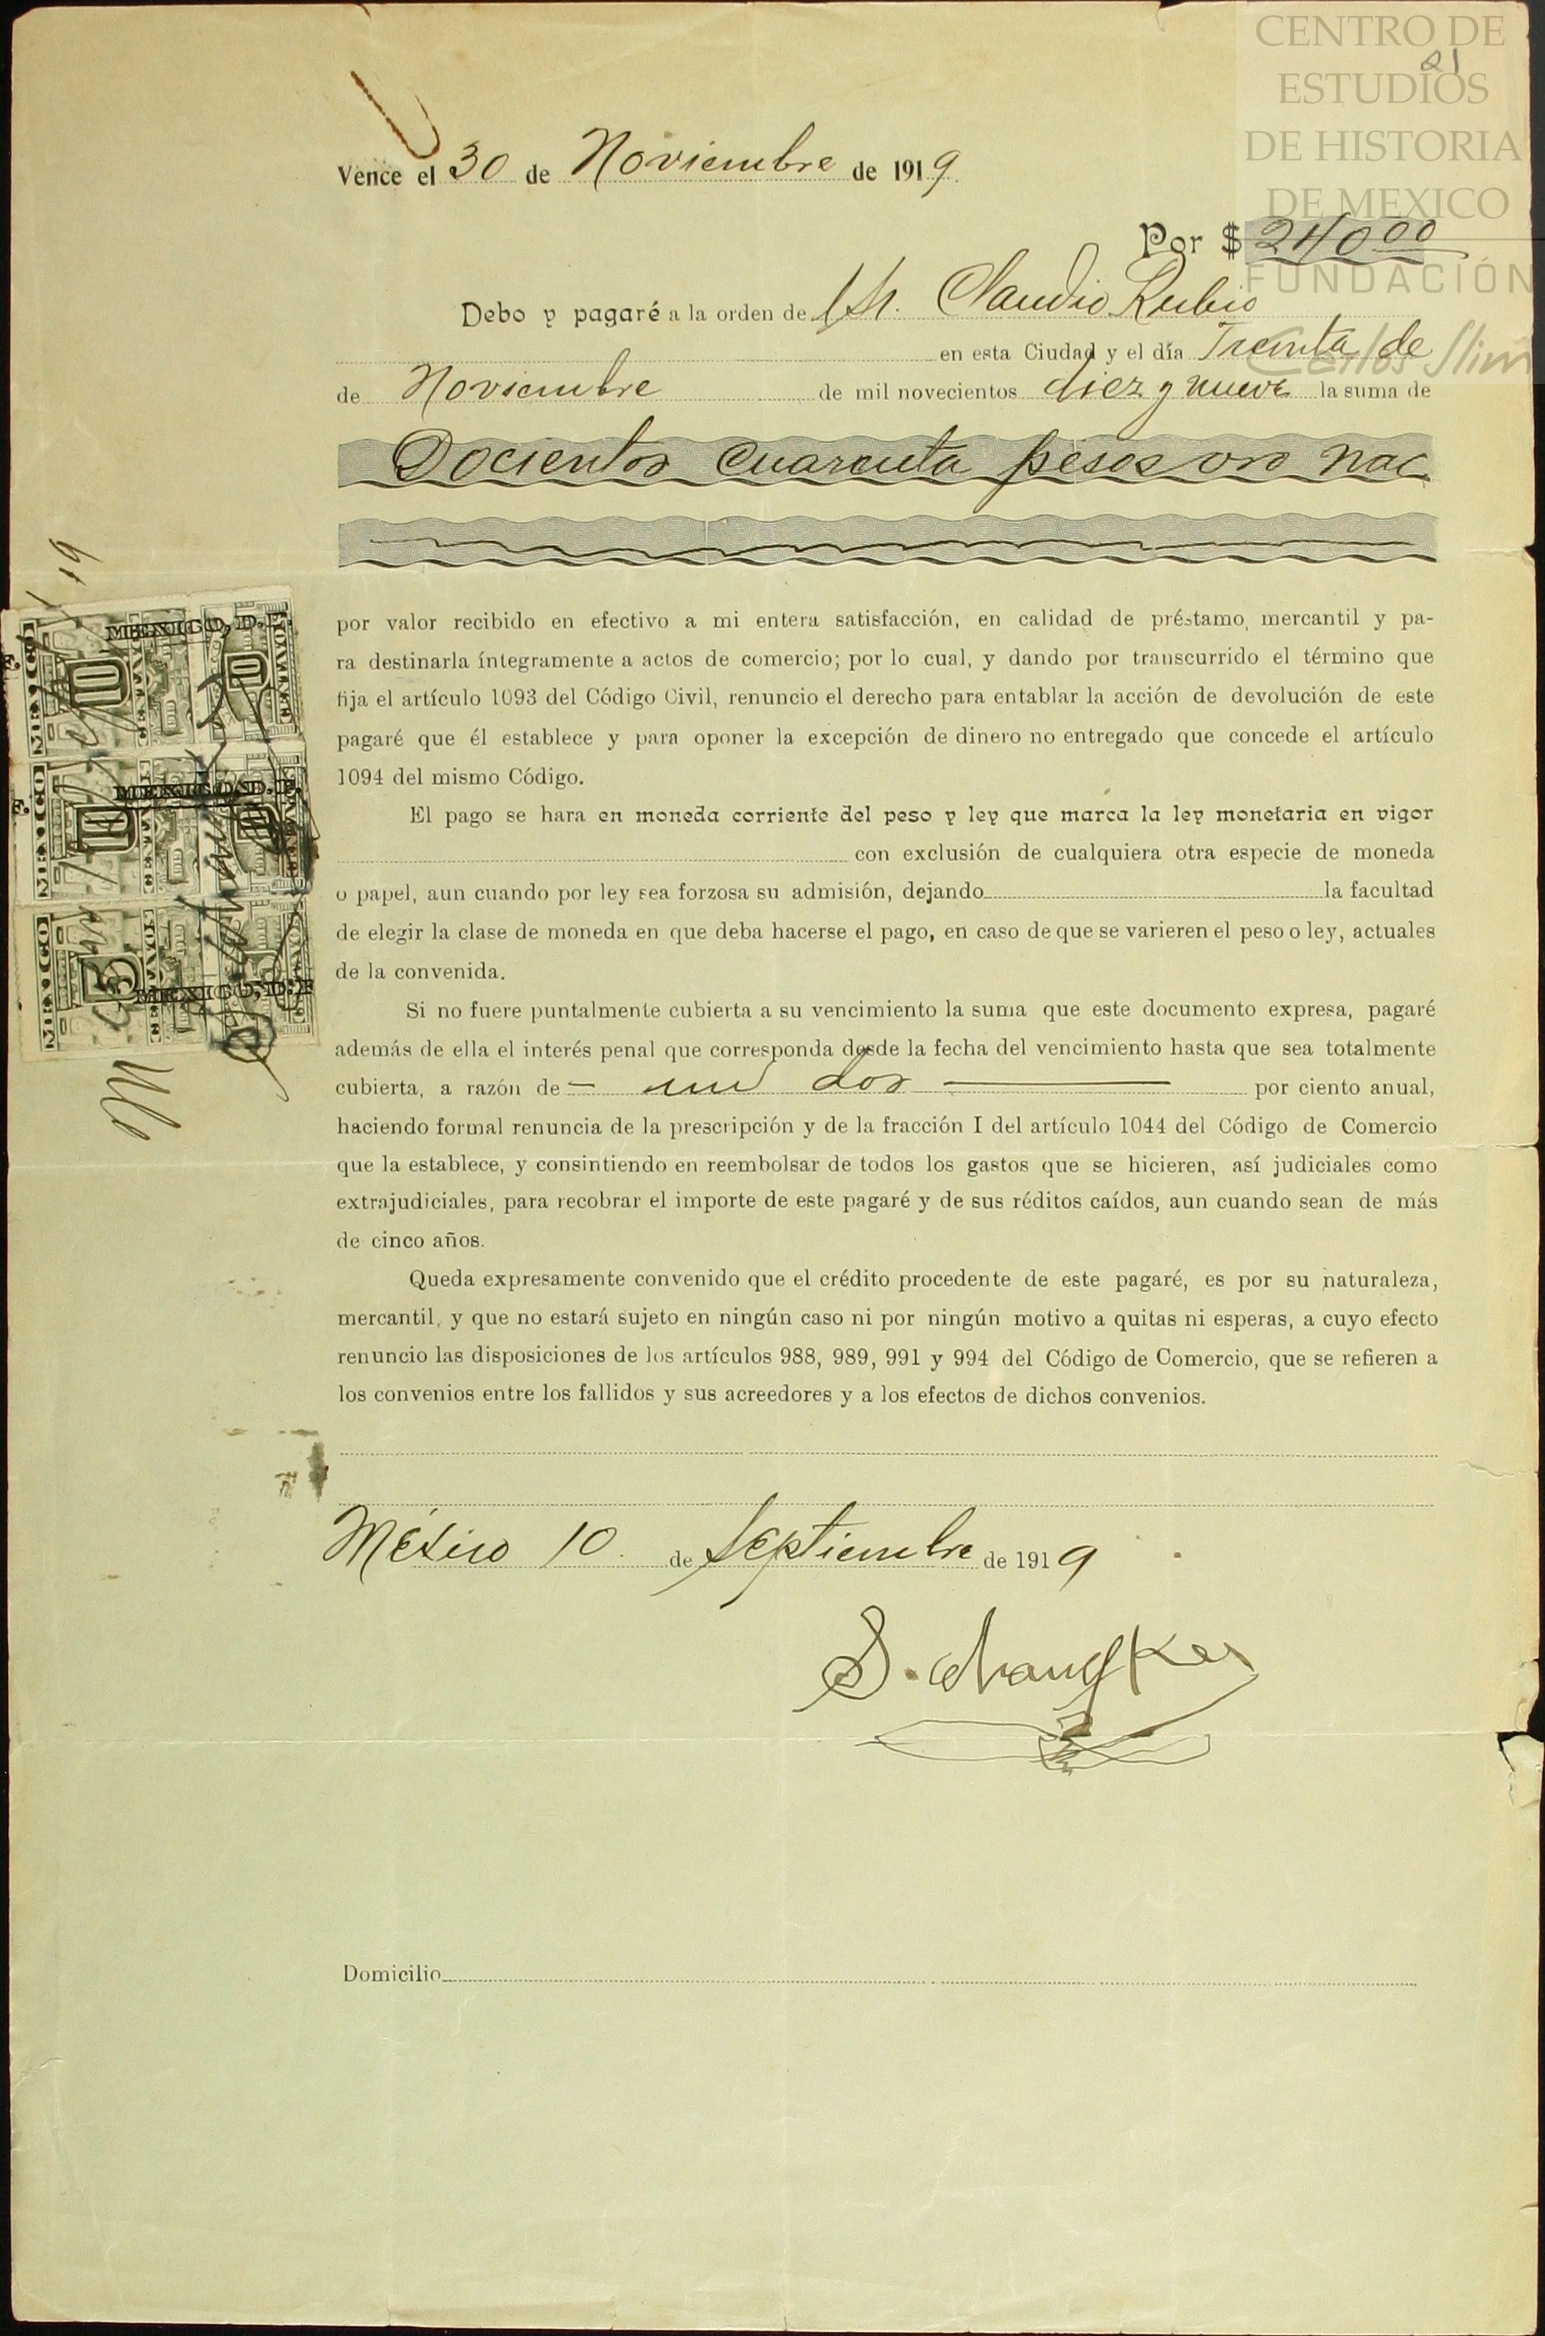 CENTRO DE
ESTUDIOS
DE HISTORIA
DE MEXICO
FUNDACIÓN
Carlos Slim
21
Vence el 30 de Noviembre de 1919.
Por $ 240 00
Debo y pagaré a la orden de Sr. Claudio Rubio
en esta Ciudad y el día Treinta de
de Noviembre de mil novecientos diez y nueve la suma de
Docientos cuarenta pesos oro nac.
por valor recibido en efectivo a mi entera satisfacción, en calidad de préstamo mercantil y pa-
ra destinarla íntegramente a actos de comercio; por lo cual, y dando por transcurrido el término que
fija el artículo 1093 del Código Civil, renuncio el derecho para entablar la acción de devolución de este
pagaré que él establece y para oponer la excepción de dinero no entregado que concede el artículo
1094 del mismo Código.
El pago se hara en moneda corriente del peso y ley que marca la ley monetaria en vigor
con exclusión de cualquiera otra especie de moneda
o papel, aun cuando por ley sea forzosa su admisión, dejando la facultad
de elegir la clase de moneda en que deba hacerse el pago, en caso de que se varieren el peso o ley, actuales
de la convenida.
Si no fuere puntalmente cubierta a su vencimiento la suma que este documento expresa, pagaré
además de ella el interés penal que corresponda desde la fecha del vencimiento hasta que sea totalmente
cubierta, a razón de dos por ciento anual,
haciendo formal renuncia de la prescripción y de la fracción I del artículo 1044 del Código de Comercio
que la establece, y consintiendo en reembolsar de todos los gastos que se hicieren, así judiciales como
extrajudiciales, para recobrar el importe de este pagaré y de sus réditos caídos, aun cuando sean de más
de cinco años.
Queda expresamente convenido que el crédito procedente de este pagaré, es por su naturaleza,
mercantil, y que no estará sujeto en ningún caso ni por ningún motivo a quitas ni esperas, a cuyo efecto
renuncio las disposiciones de los artículos 988, 989, 991 y 994 del Código de Comercio, que se refieren a
los convenios entre los fallidos y sus acreedores y a los efectos de dichos convenios.
México 10 de Septiembre de 1919
S.
Domicilio
19
MEXICO, D. F.
MEXICO, D. F.
MEXICO, D. F.
MEXICO
10
10
MEXICO
10
MEXICO
5